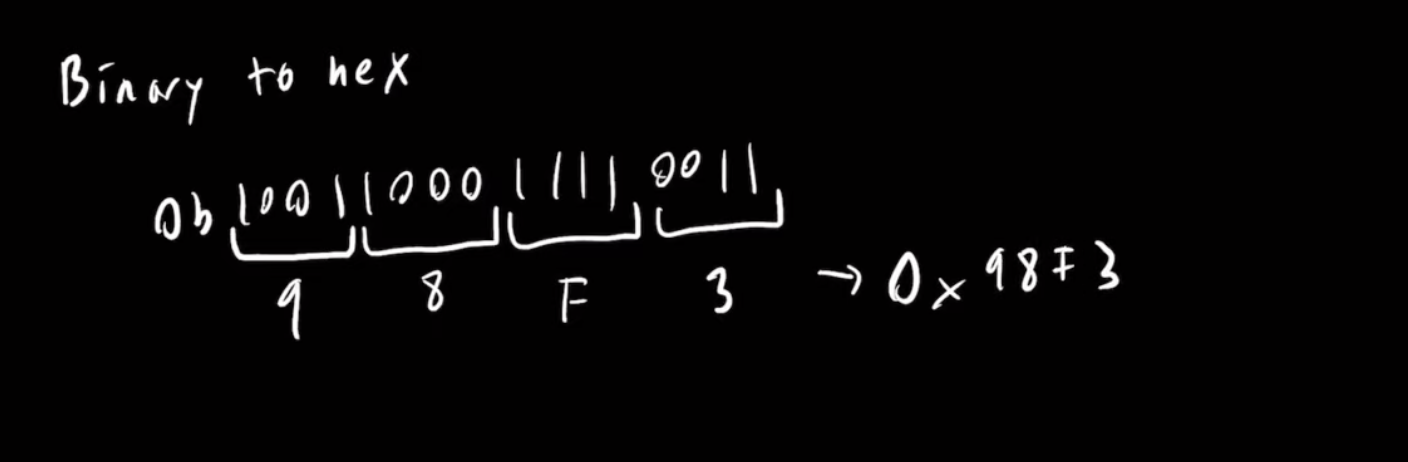 Binary to hex
0b 1001 1000 1111 0011
9 8 F 3 → 0x98F3